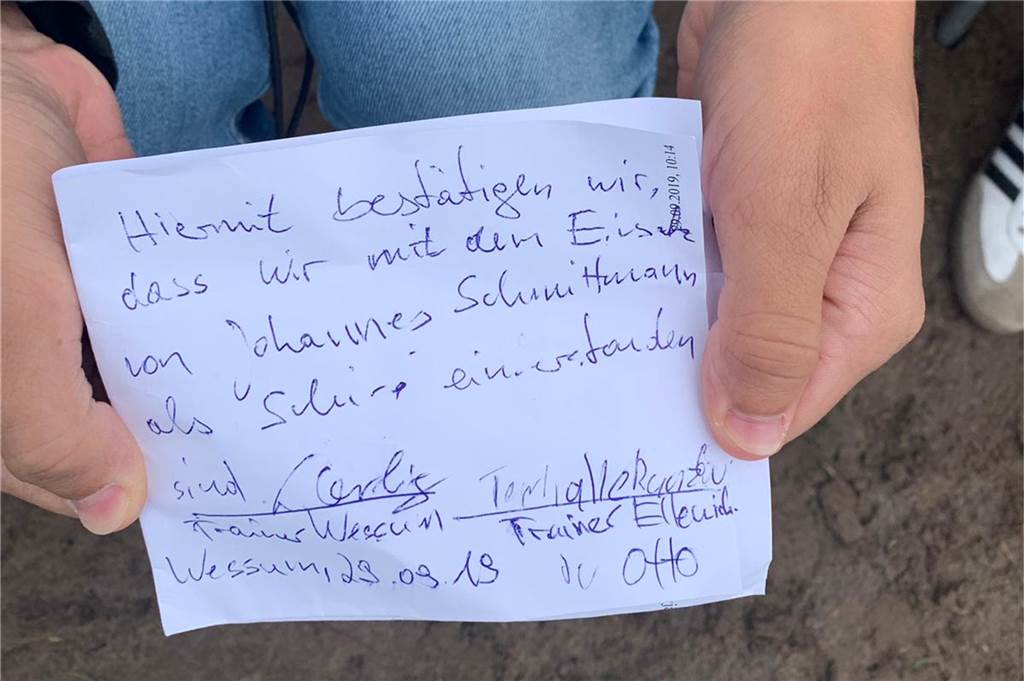 Hiermit bestätigen wir,
dass wir mit dem Einsatz
von Johannes Schmittmann
als "Schiri" einverstanden
sind.
Trainer Wessum
Trainer Ellewich.
Wessum, 29.09.19
Otto
29.09.2019, 10:14